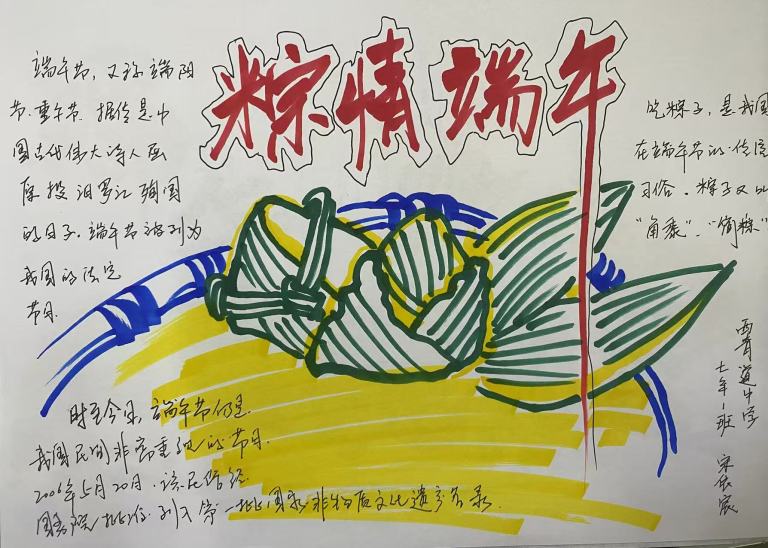 粽情端午
端午节，又称端阳
节、重午节，据传是中
国古代伟大诗人屈
原投汨罗江殉国
的日子。端午节被列为
我国的法定
节日
吃粽子，是我国
在端午节的传统
习俗。粽子又叫
“角黍”、“筒粽”
时至今日，端午节仍是
我国民间非常重要的节日
2006年5月20日，该民俗经
国务院批准列入第一批国家非物质文化遗产名录
西青道中学
七年1班